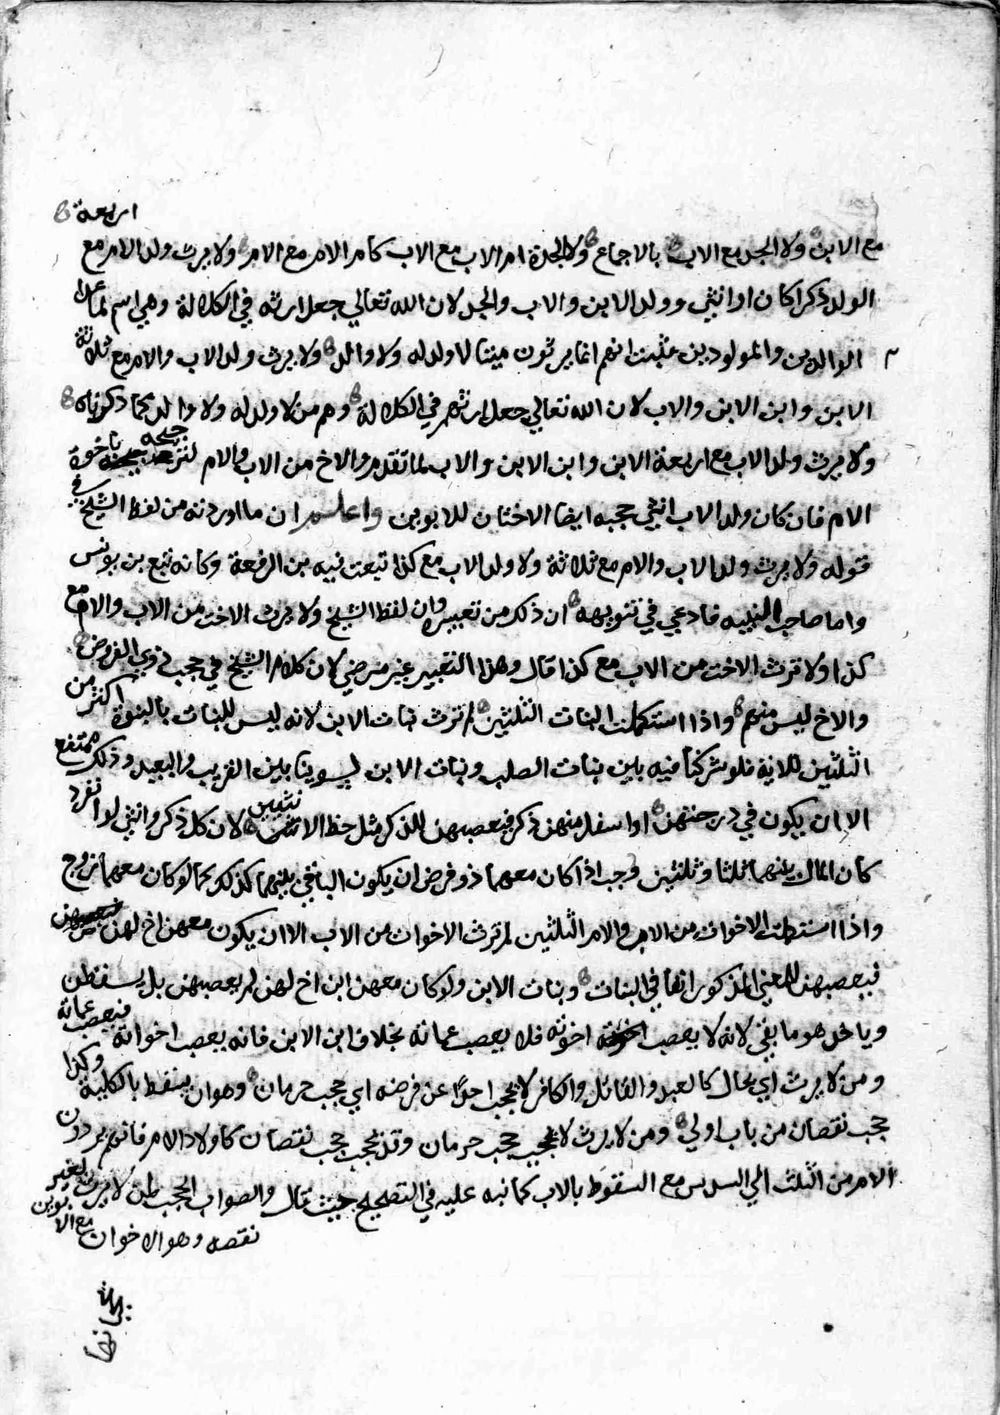 مع الابن ولا الجد مع الاب بالاجماع ولا الجدة ام الاب مع الاب كام الام مع الام ولا يرث ولد الام مع اربعة
الولد ذكرا كان او انثي وولد الابن والاب والجد لان الله تعالي جعل ارثه في الكلالة وهي اسم لما عدا
الوالدين والمولودين فثبت انهم انما يرثون ميتا لا ولد له ولا والد ولا يرث ولد الاب والام مع ثلاثة
الابن وابن الابن والاب لان الله تعالي جعل ارثهم في الكلالة وهم من لا ولد له ولا والد كما ذكرناه
ولا يرث ولد الاب مع اربعة الابن وابن الابن والاب لما تقدم والاخ من الاب والام لترجحه باخوة
الام فان كان ولد الاب انثي حجبه ايضا الاختان للابوين واعلم ان ما اوردته من لفظ الشيخ في
قوله ولا يرث ولد الاب والام مع ثلاثة ولا ولد الاب مع كذا تبعت فيه بن الرفعة وكانه تبع بن يونس
واما صاحب التنبيه فادعي في تنويهه ان ذلك من تعبيره وان لفظ الشيخ ولا يرث الاخت من الاب والام مع
كذا ولا ترث الاخت من الاب مع كذا قال وهذا التغيير غير مرضي لان كلام الشيخ في حجب ذوي الفروض
والاخ ليس منهم واذا استكملت البنات الثلثين لم ترث بنات الابن لانه ليس للبنات بالبنوة اكثر من
الثلثين للاية فلو شركنا فيه بين بنات الصلب وبنات الابن لسوينا بين القريب والبعيد وذلك ممتنع
الا ان يكون في درجتهن او اسفل منهن ذكر فيعصبهن للذكر مثل حظ الانثيين لان كل ذكر وانثي لو انفرد
كان المال بينهما ثلثا وثلثين وجب اذا كان معهما ذو فرض ان يكون الباقي بينهما كذلك كما لو كان معهما زوج
واذا استكملت الاخوات من الاب والام الثلثين لم ترث الاخوات من الاب الا ان يكون معهن اخ لهن
فيعصبهن للمعني المذكور انفا في البنات وبنات الابن ولو كان معهن ابن اخ لهن لم يعصبهن بل يسقطن
وياخذ هو ما بقي لانه لا يعصب اخوته فلا يعصب عماته بخلاف ابن الابن فانه يعصب اخواته فيعصب عماته
ومن لا يرث اي بحال كالعبد والقاتل والكافر لا يحجب احدا عن فرضه اي حجب حرمان وهو ان يسقط بالكلية وكذا
حجب نقصان من باب اولي ومن لا يرث لا يحجب حجب حرمان وقد يحجب حجب نقصان كاولاد الام فانهم يردون
الام من الثلث الي السدس مع السقوط بالاب كما نبه عليه في التصحيح حيث قال والصواب الحجب بمن لا يرث لغير
نقصه وهو الاخوان مع الابوين